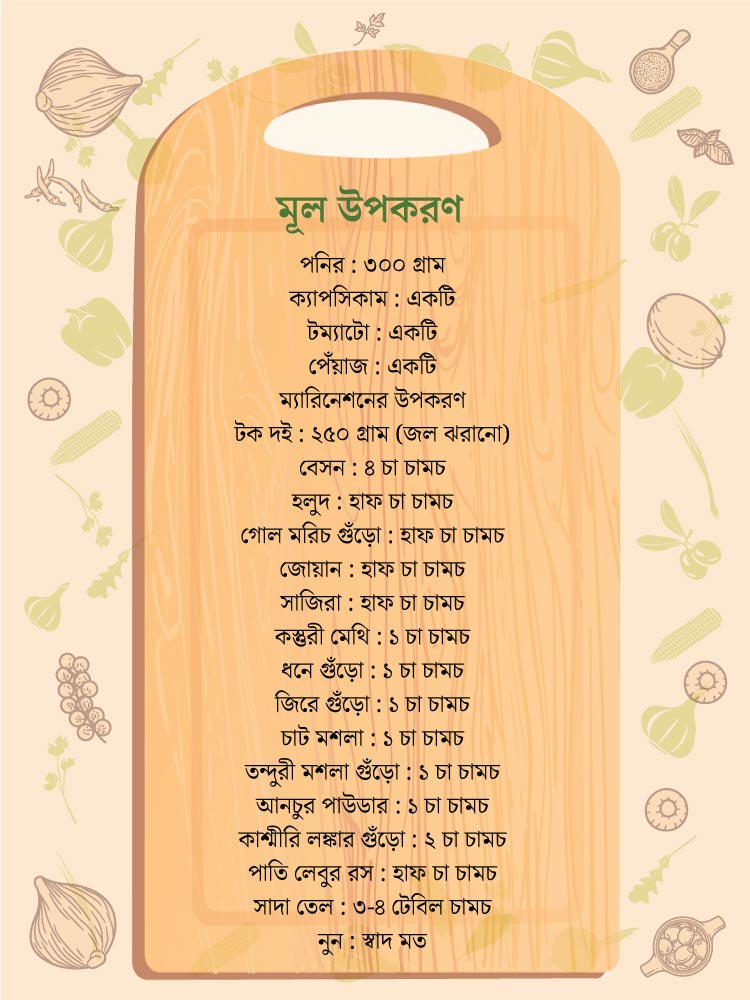 মূল উপকরণ
পনির : ৩০০ গ্রাম
ক্যাপসিকাম : একটি
টম্যাটো : একটি
পেঁয়াজ : একটি
ম্যারিনেশনের উপকরণ
টক দই : ২৫০ গ্রাম (জল ঝরানো)
বেসন : ৪ চা চামচ
হলুদ : হাফ চা চামচ
গোল মরিচ গুঁড়ো : হাফ চা চামচ
জোয়ান : হাফ চা চামচ
সাজিরা : হাফ চা চামচ
কস্তুরী মেথি : ১ চা চামচ
ধনে গুঁড়ো : ১ চা চামচ
জিরে গুঁড়ো : ১ চা চামচ
চাট মশলা : ১ চা চামচ
তন্দুরী মশলা গুঁড়ো : ১ চা চামচ
আনচুর পাউডার : ১ চা চামচ
কাশ্মীরি লঙ্কার গুঁড়ো : ২ চা চামচ
পাতি লেবুর রস : হাফ চা চামচ
সাদা তেল : ৩-৪ টেবিল চামচ
নুন : স্বাদ মত